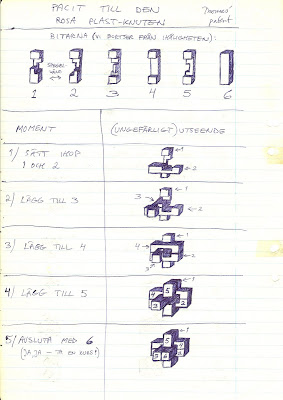 FACIT TILL DEN
ROSA PLAST-KNUTEN
"Pommes"
patent
BITARNA (VI BORTSER FRÅN HÅLIGHETEN):
SPEGEL-
VÄND
1 2 3 4 5 6
MOMENT (UNGEFÄRLIGT) UTSEENDE
1/ SÄTT IHOP
1 OCH 2
1
2
2/ LÄGG TILL 3
1
3
2
3/ LÄGG TILL 4
1
4
2
3
4/ LÄGG TILL 5
1
4 5
2
3
5/ AVSLUTA MED 6
(JA, JA – TA EN KUBB!)
1